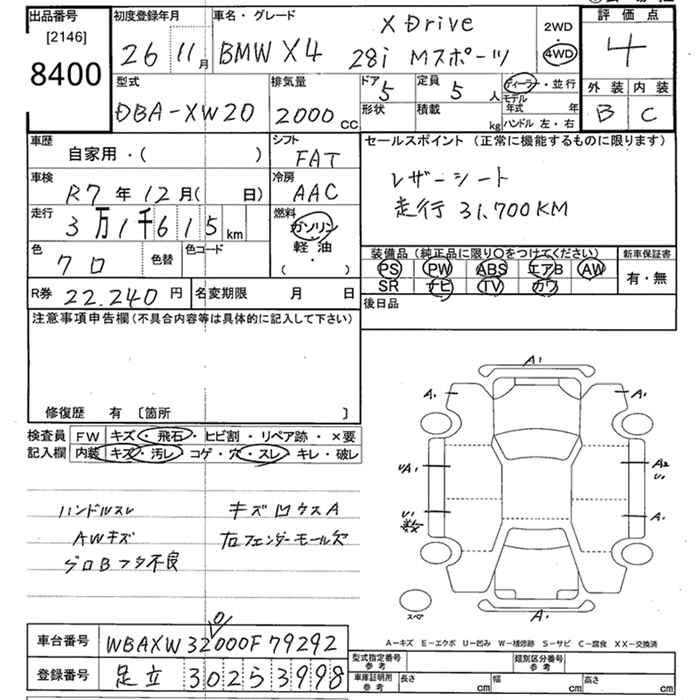 出品番号 初度登録年月 車名・グレード 2WD 評価点
[2146] 26 11月 BMW X4 X Drive 28i Mスポーツ 4WD 4
8400
型式 排気量 ドア 5 定員 5人 ディーラー・並行 外装 内装
DBA-XW20 2000cc 形状 積載 kg モデル年式 年 B C
ハンドル 左・右
車歴 シフト セールスポイント (正常に機能するものに限ります)
自家用・( ) FAT
車検 冷房 レザーシート
R7年12月( 日) AAC 走行 31,700KM
走行 燃料
3万1千615km ガソリン・軽油・( )
色 色替 色コード 装備品 (純正品に限り○をつけてください) 新車保証書
クロ PS PW ABS エアB AW 有・無
SR ナビ TV カワ
R券 22.240円 名変期限 月 日 後日品
注意事項申告欄 (不具合内容等は具体的に記入して下さい)
修復歴 有 〔箇所 〕
検査員 FW キズ・飛石・ヒビ割・リペア跡・×要
記入欄 内装 キズ・汚レ・コゲ・穴・スレ・キレ・破レ
ハンドルスレ キズ凹ウスA
AWキズ 右フェンダーモール欠
グロBフタ不良
A1
A1 A1
UA1 A2
U1 A1
スペア A1
A-キズ E-エクボ U-凹み W-補修跡 S-サビ C-腐食 XX-交換済
車台番号 WBAXW32000F79292
0
登録番号 足立 302 5 3998
型式指定番号 参考 類別区分番号 参考
車庫証明用 参考 長さ cm 幅 cm 高さ cm